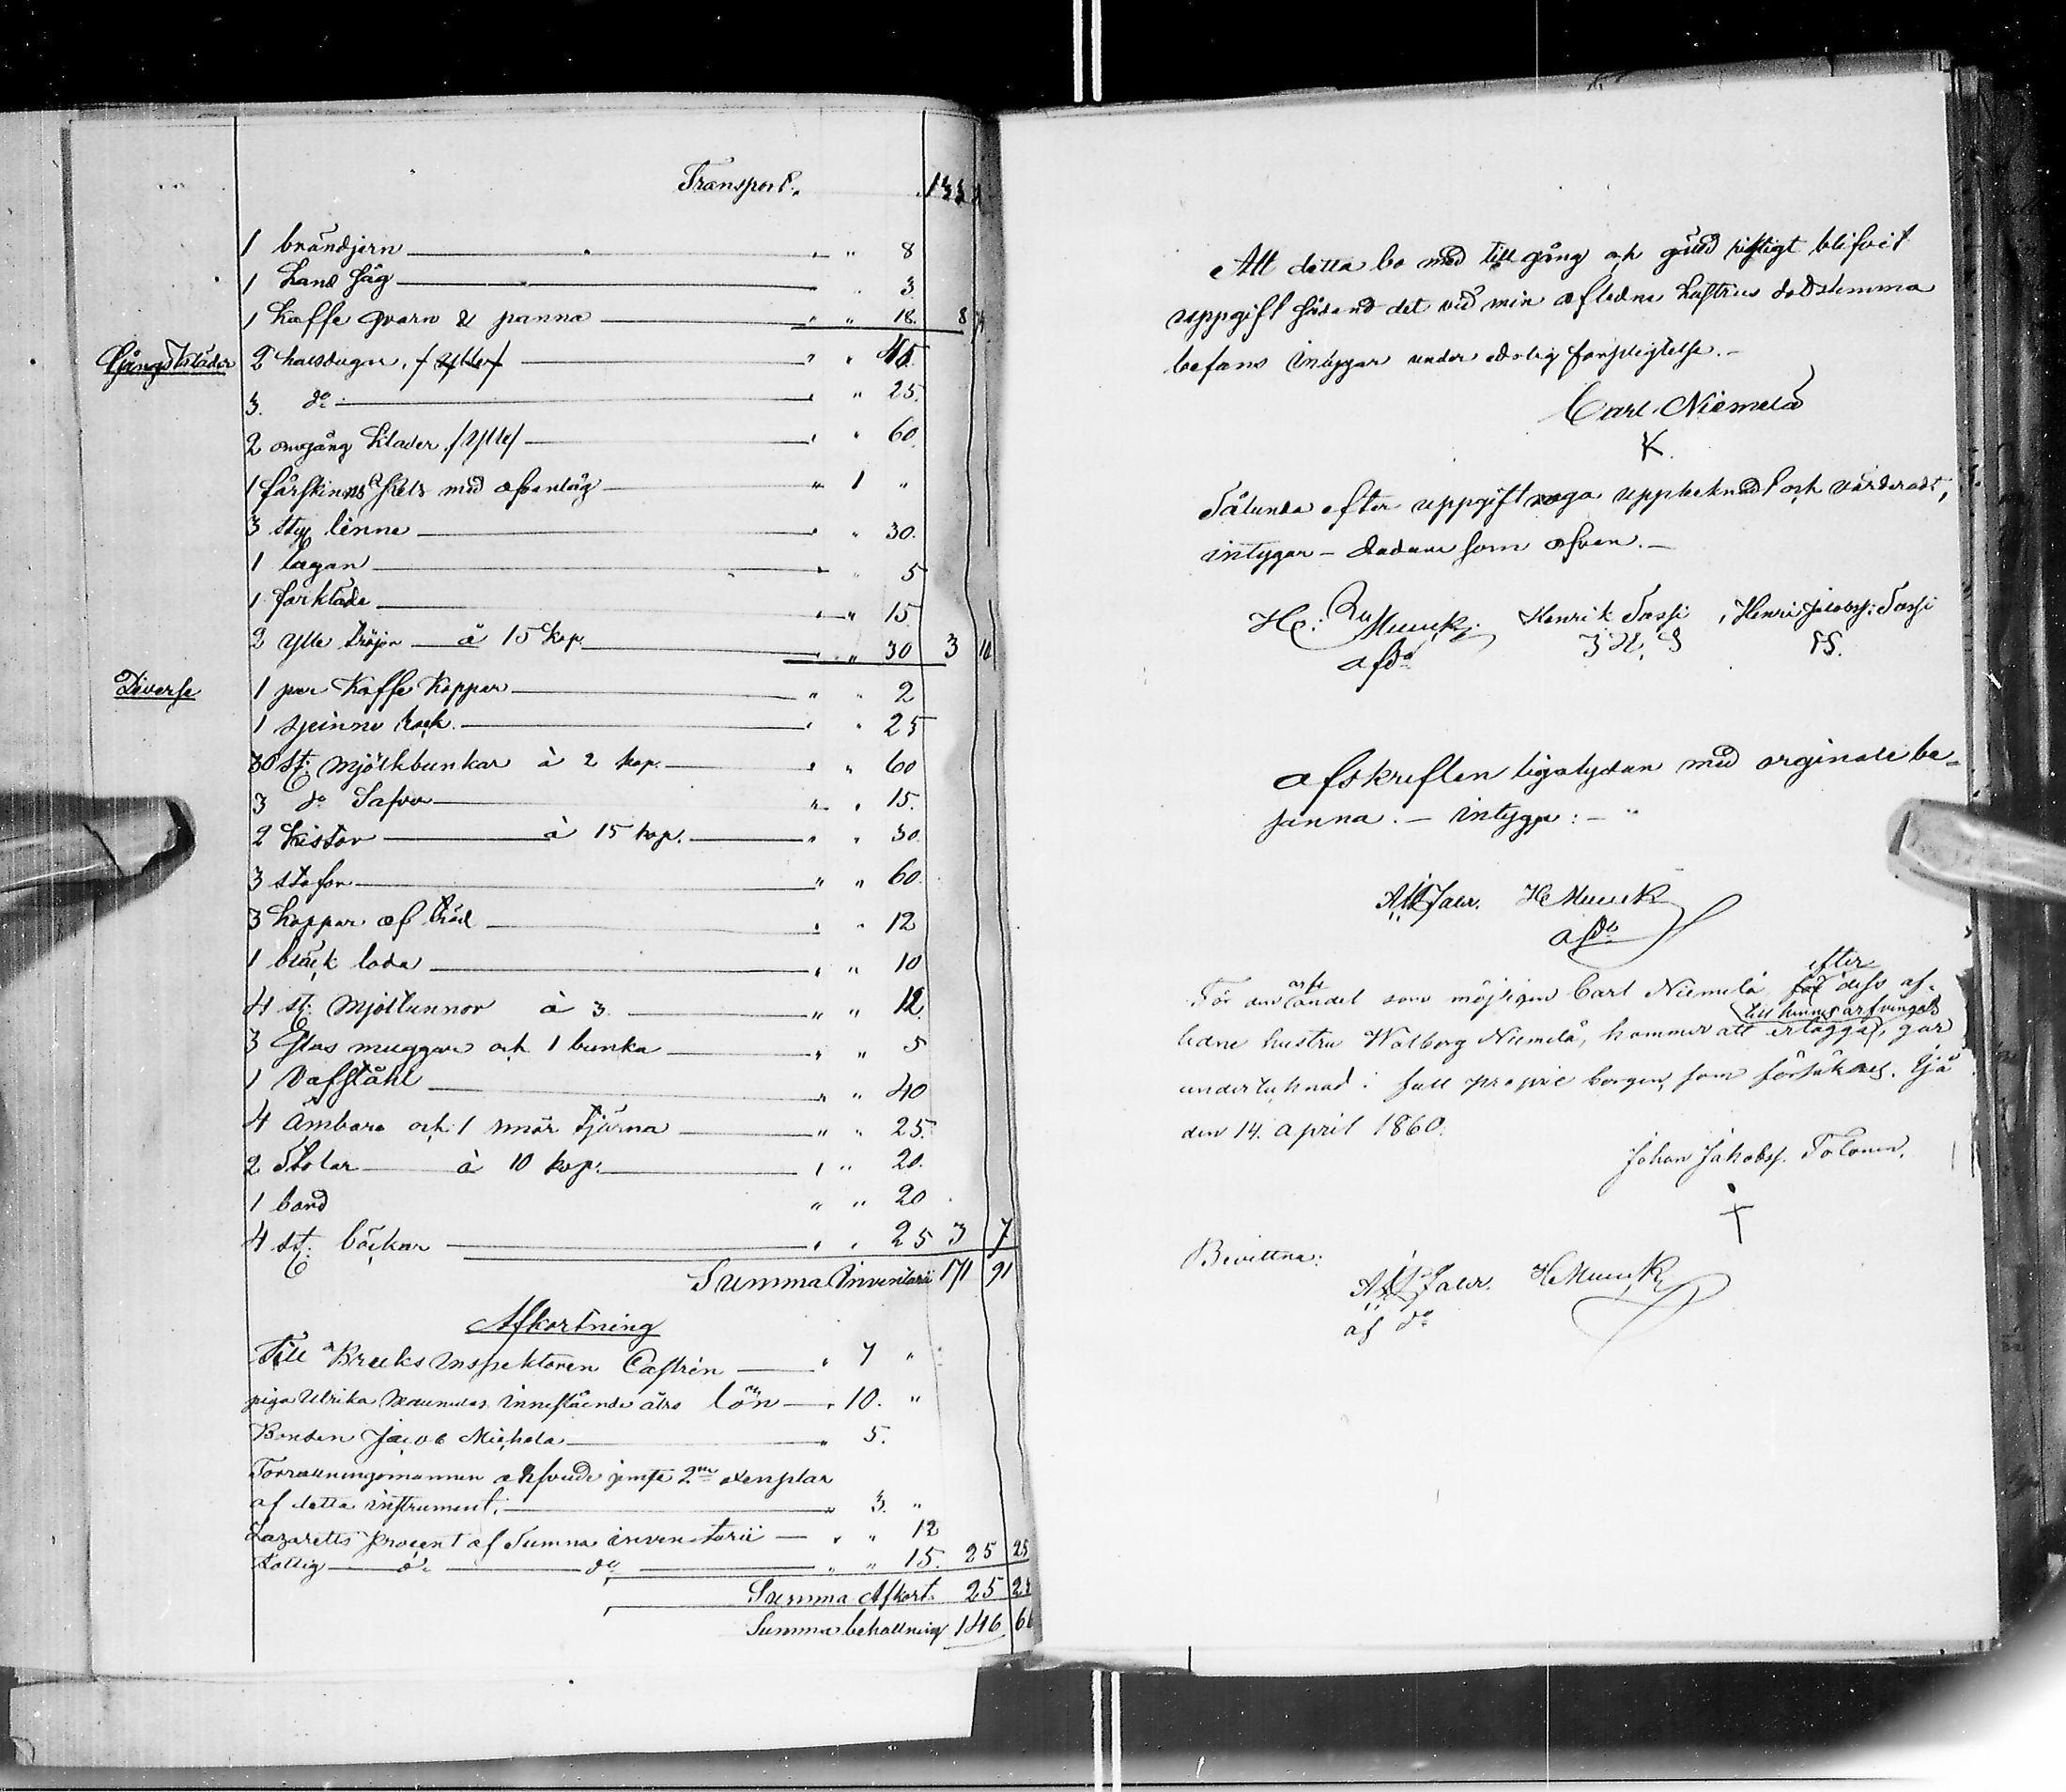 Transport. 133
1 brändjern " " 8
1 hand såg " 3
1 Kaffe qvarn & panna " " 18. 8
Gångkläder 2 halsdugar, " " 45
3. do " 25.
2 omgång Kläder /ylle/ " " 60.
1 fårskinns Pels med ofvanläg " 1 "
3 sty linne " " 30.
1 lagan " " 5
1 förkläde " " 15
2 ylle tröjor à 15 kop. " " 30 3 10
Diverse 1 par Kaffe Koppar " " 2
1 spinn rock. " " 25
30 st. mjölkbunkar à 2 kop. " " 60
3 do Såfvar " " 15.
2 Kistor à 15 kop. " " 30.
3 stäfvor " " 60.
3 koppar af träd " " 12
1 bläck loda " " 10
4 st. mjöltunnor à 3 " " 12
3 Glas muggar och 1 bunka " " 5
1 Väfståhl " " 40
4 Ämbare och 1 smör tjärna " " 25.
2 Stolar à 10 kop. " " 20.
1 bord " " 20
4 st. böckar " " 25 3 7
Summa Inventarii 171 91
Afkortning
Till Bruks Inspektoren Castrén " 7 "
piga Ulrika innestående års lön " 10. "
Bonden Jacob " 5.
Förrättningsmannen arfvode jemte 2ne exemplar
af detta instrument. " 3. "
Lazaretts procent af Summa inventarii " " 12
Fattig do do " " 15. 25 25
Summa Afkort. 25 25
Summa behållning 146 66
Att detta bo med till gång och gäld riktigt blifvit
uppgift sådand det vid min aflidne hustrus dödstimma
befans intygar under edelig förpligtelse.-
Carl Niemelä
K.
Sålunda efter uppgift noga upptecknadt och värderadt,
intygar - Datum som ofvan.-
He: Munck. Henrik Tassi, Henr: Jakobss: Tassi
Afskriften ligalydan med orginale be-
fanna.- intyga:-
He Munck
För den arfs andel som möjligen Carl Niemelä för efter dess af-
lidne hustru Walborg Niemelä, kommer att erlägga till hennes arfvingar, går
undertecknad i full proprie borgen, som försäkras. Ijå
den 14. April 1860.
Johan Jakobss. Tolonen.
Bevittna:
He Munck